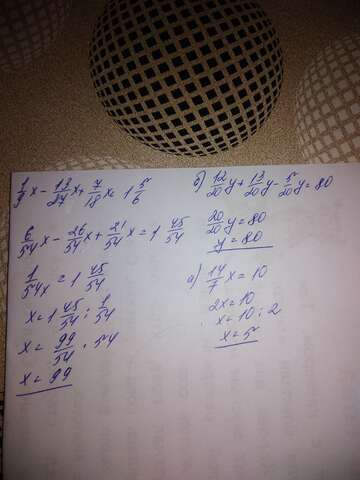 1/9 x - 13/27 x + 7/18 x = 1 5/6
6/54 x - 26/54 x + 21/54 x = 1 45/54
1/54x = 1 45/54
x = 1 45/54 : 1/54
x = 99/54 · 54
x = 99
б) 12/20 y + 13/20 y - 5/20 y = 80
20/20 y = 80
y = 80
а) 14/7 x = 10
2x = 10
x = 10 : 2
x = 5